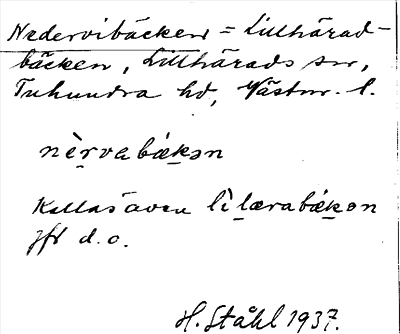 Nedervibäcken = Lillhärad-
bäcken, Lillhärads sn,
Tuhundra hd, Västm. l.
nèrvabǽkən
Kallas även lìlærabǽkən
jfr d. o.
H. Ståhl 1937.